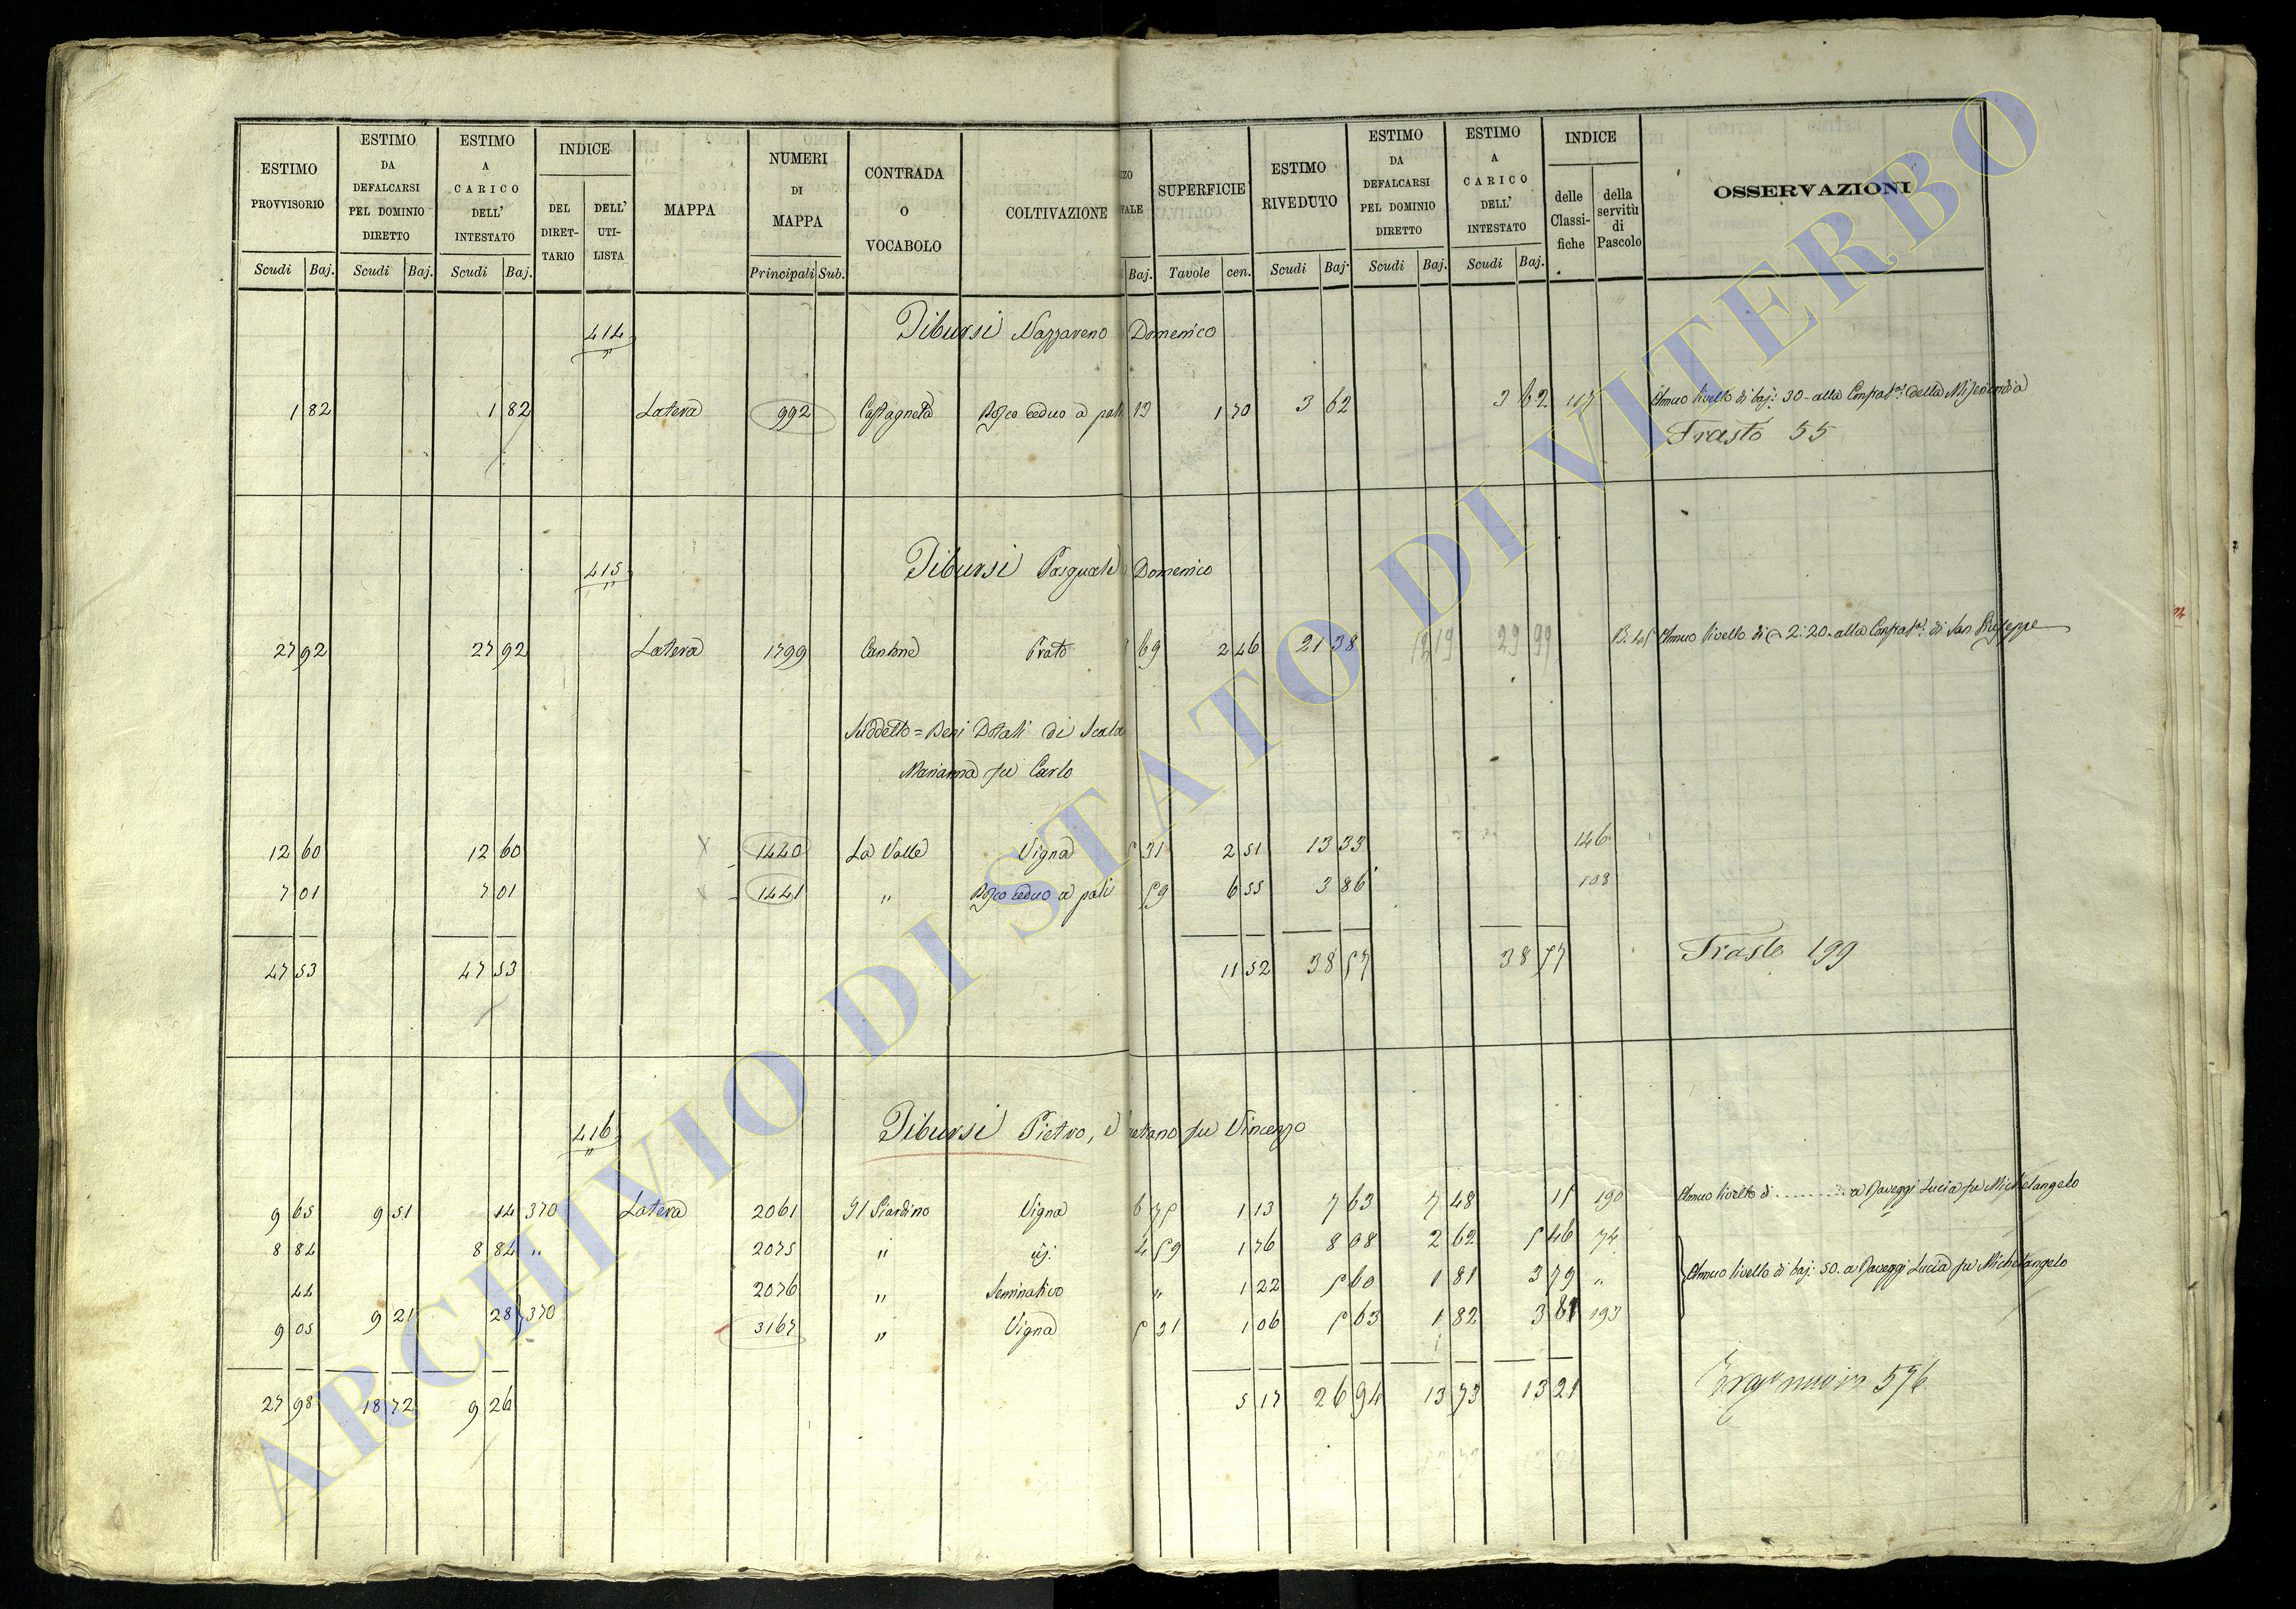 ESTIMO PROVVISORIO | ESTIMO DA DEFALCARSI PEL DOMINIO DIRETTO | ESTIMO A CARICO DELL' INTESTATO | INDICE | MAPPA | NUMERI DI MAPPA | CONTRADA O VOCABOLO | COLTIVAZIONE | SUPERFICIE | ESTIMO RIVEDUTO | ESTIMO DA DEFALCARSI PEL DOMINIO DIRETTO | ESTIMO A CARICO DELL' INTESTATO | INDICE | OSSERVAZIONI
DEL DIRETTARIO | DELL' UTILISTA | delle Classifiche | della servitù di Pascolo
Scudi | Baj. | Scudi | Baj. | Scudi | Baj. | Principali | Sub. | Baj. | Tavole | cen. | Scudi | Baj. | Scudi | Baj. | Scudi | Baj.
414 Tibursi Nazzareno Domenico
1 82 1 82 Latera 992 Castagneta Bosco ceduo a pali 13 1 70 3 62 3 62 107 Annuo livello di baj: 30 - alla Confrat. della Misericordia
Trasto 55
415 Tibursi Pasquale Domenico
27 92 27 92 Latera 1799 Cantone Prato 69 2 46 21 38 29 99 Annuo livello di 2:20 - alla Confrat. di San Giuseppe
Suddetto = Beni Dotali di Scala
Marianna fu Carlo
12 60 12 60 1440 La Valle Vigna 5 31 2 51 13 33 146
7 01 7 01 1441 " Bosco ceduo a pali 59 6 55 3 86 108
47 53 47 53 11 52 38 57 38 57 Trasto 199
416 Tibursi Pietro, e Gaetano fu Vincenzo
9 65 9 51 14 370 Latera 2061 Il Giardino Vigna 6 75 1 13 7 63 7 48 15 190 Annuo livello di .......... a Paveggi Lucia fu Michelangelo
8 84 8 84 " 2075 " id. 4 59 1 76 8 08 2 62 5 46 74
44 2076 " Seminativo " 1 22 5 60 1 81 3 79 " Annuo livello di baj. 50. a Paveggi Lucia fu Michelangelo
9 05 9 21 28 370 3167 " Vigna 5 31 1 06 5 63 1 82 3 81 193
27 98 18 72 9 26 5 17 26 94 13 73 13 21 576
ARCHIVIO DI STATO DI VITERBO